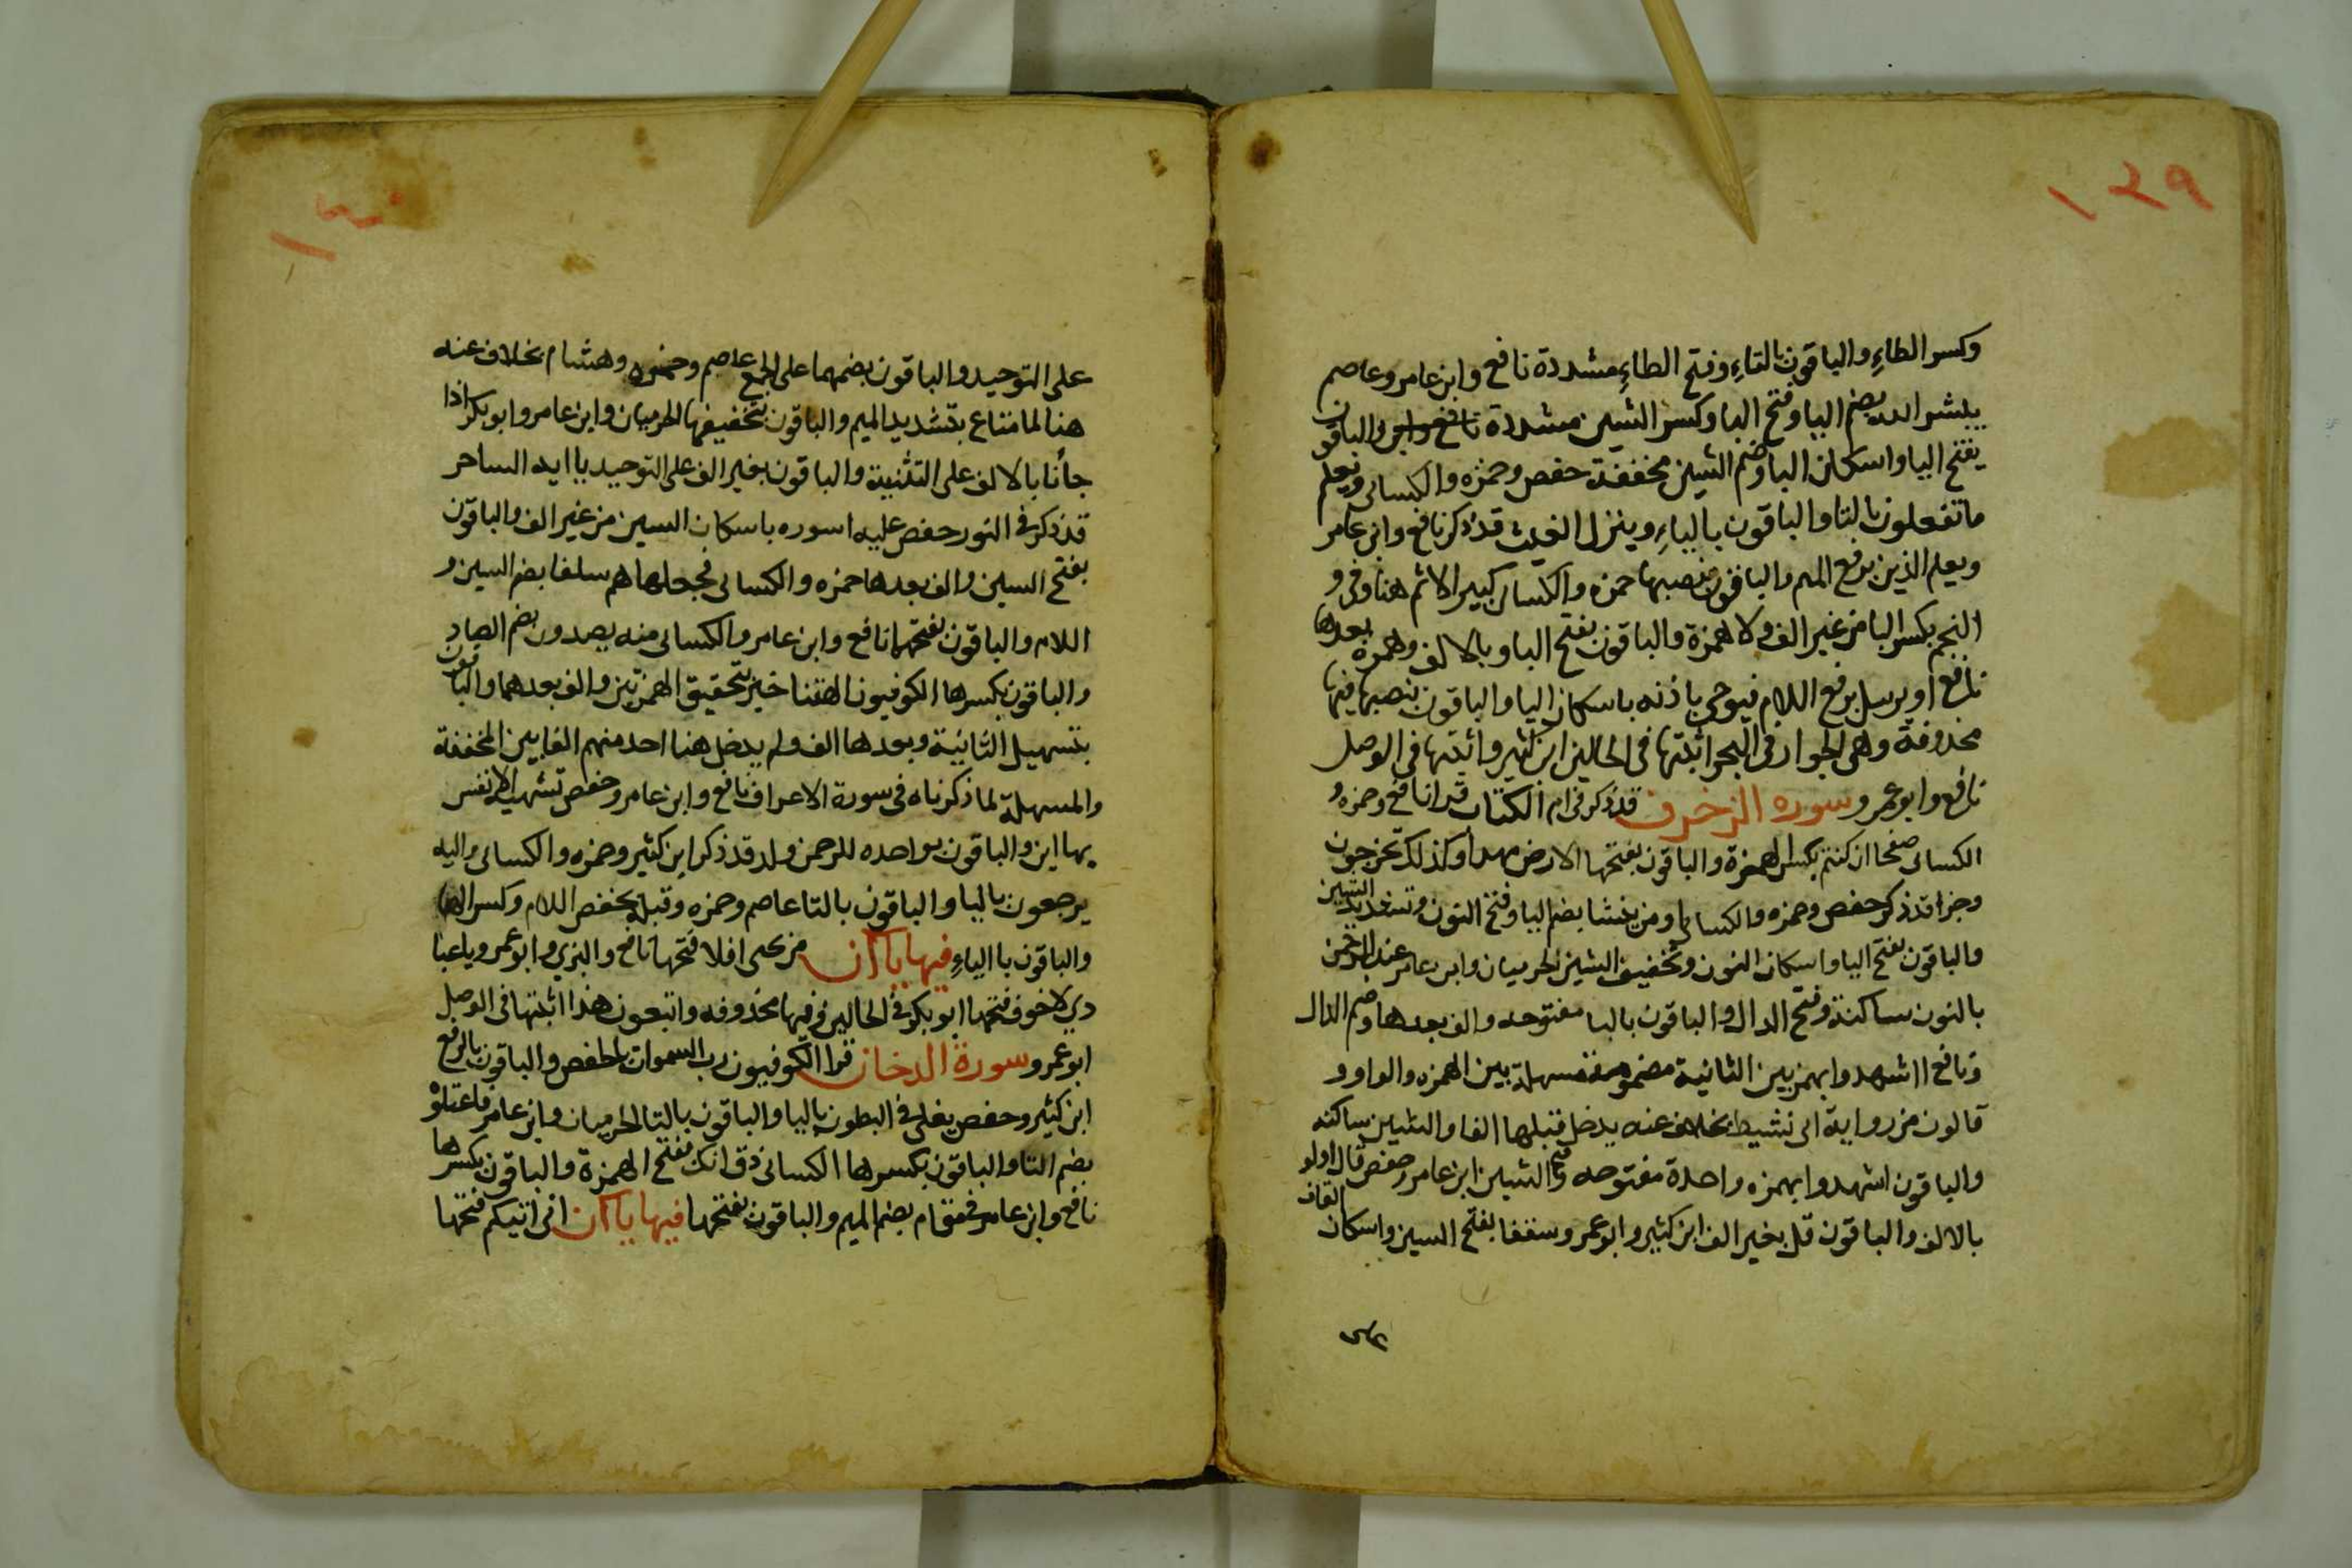 ١٢٩
وكسر الطاءِ والباقون بالتاءِ وفتح الطاءِ مشددة نافع وابن عامر وعاصم
يبشر الله بضم اليا وفتح البا وكسر الشين مشددة نافع وابن والباقون
بفتح اليا واسكان البا وضم الشين مخففة حفص وحمزه والكسائى ويعلم
ما تفعلون بالتا والباقون بالياءِ وينزل الغيث قد ذكر نافع وابن عامر
ويعلم الذين برفع الميم والباقون بنصبها حمزه والكسائى كبير الاثم هنا وفى و
النجم بكسر البا من غير الف ولا همزة والباقون بفتح البا وبالالف وهمزه بعدها
نافع او يرسل برفع اللام فيوحى باذنه باسكان اليا والباقون بنصبها فيها
محذوفة وهى الجوار فى البحر اثبتها فى الحالين ابن كثير واثبتها فى الوصل
نافع وابو عمرو سوره الزخرف قد ذكر فى ام الكتاب قرا نافع وحمزه و
الكسائى صفحا ان كنتم بكسر الهمزة والباقون بفتحها الارض مهدا وكذلك تخرجون
وجزا قد ذكر حفص وحمزه والكسائى او من ينشا بضم اليا وفتح النون وتشديد الشين
والباقون بفتح اليا واسكان النون وتخفيف الشين الحرميان وابن عامر عند الرحمن
بالنون ساكنة وفتح الدال والباقون بالبا مفتوحه والف بعدها وضم الدال
ونافع ااشهدوا بهمزبين الثانية مضمومة مسهلة بين الهمزه والواو و
قالون من رواية ابى نشيط بخلاف عنه يدخل قبلها الفا والشين ساكنه
والباقون اشهدوا بهمزه واحدة مفتوحه وفتح الشين ابن عامر وحفص قال اولو
بالالف والباقون قل بغير الف ابن كثير وابو عمرو سقفا بفتح السين واسكان القاف
١٣٠
على التوحيد والباقون بضمهما على الجمع عاصم وحمزه وهشام بخلاف عنه
هنا لما متاع بتشديد الميم والباقون بتخفيفها الحرميان وابن عامر وابو بكر اذا
جأنا بالالف على التثنية والباقون بغير الف على التوحيد يا ايه الساحر
قد ذكر فى النور حفص عليه اسوره باسكان السين من غير الف والباقون
بفتح السين والف بعدها حمزه والكسائى فجعلهاهم سلفا بضم السين و
اللام والباقون بفتحهما نافع وابن عامر والكسائى منه يصدون بضم الصاد
والباقون بكسرها الكوفيون االهتنا خير بتحقيق الهمزتين والف بعدهما والباقون
بتسهيل الثانية وبعدها الف ولم يدخل هنا احد منهم الفا بين المخففة
والمسهلة لما ذكرناه فى سورة الاعراف نافع وابن عامر وحفص تشتهيه الانفس
بهااين والباقون بواحده للرحمن ولد قد ذكر ابن كثير وحمزه والكسائى واليه
يرجعون باليا والباقون بالتا عاصم وحمزه وقيله بخفض اللام وكسر الها
والباقون باالياءِ فيها ياآن من تحتى افلا فتحها نافع والبزي وابو عمرو ياعبا
دي لا خوف فتحها ابو بكر فى الحالين وفيها محذوفه واتبعون هذا اثبتها فى الوصل
ابو عمرو سورة الدخان قرا الكوفيون رب السموات بالخفض والباقون بالرفع
ابن كثير وحفص يغلى فى البطون باليا والباقون بالتا الحرميان وابن عامر فاعتلوْ
بضم التا والباقون بكسرها الكسائى ذق انك بفتح الهمزة والباقون بكسرها
نافع وابن عامر فى مقام بضم الميم والباقون بفتحها فيها ياآن انى اتيكم فتحها